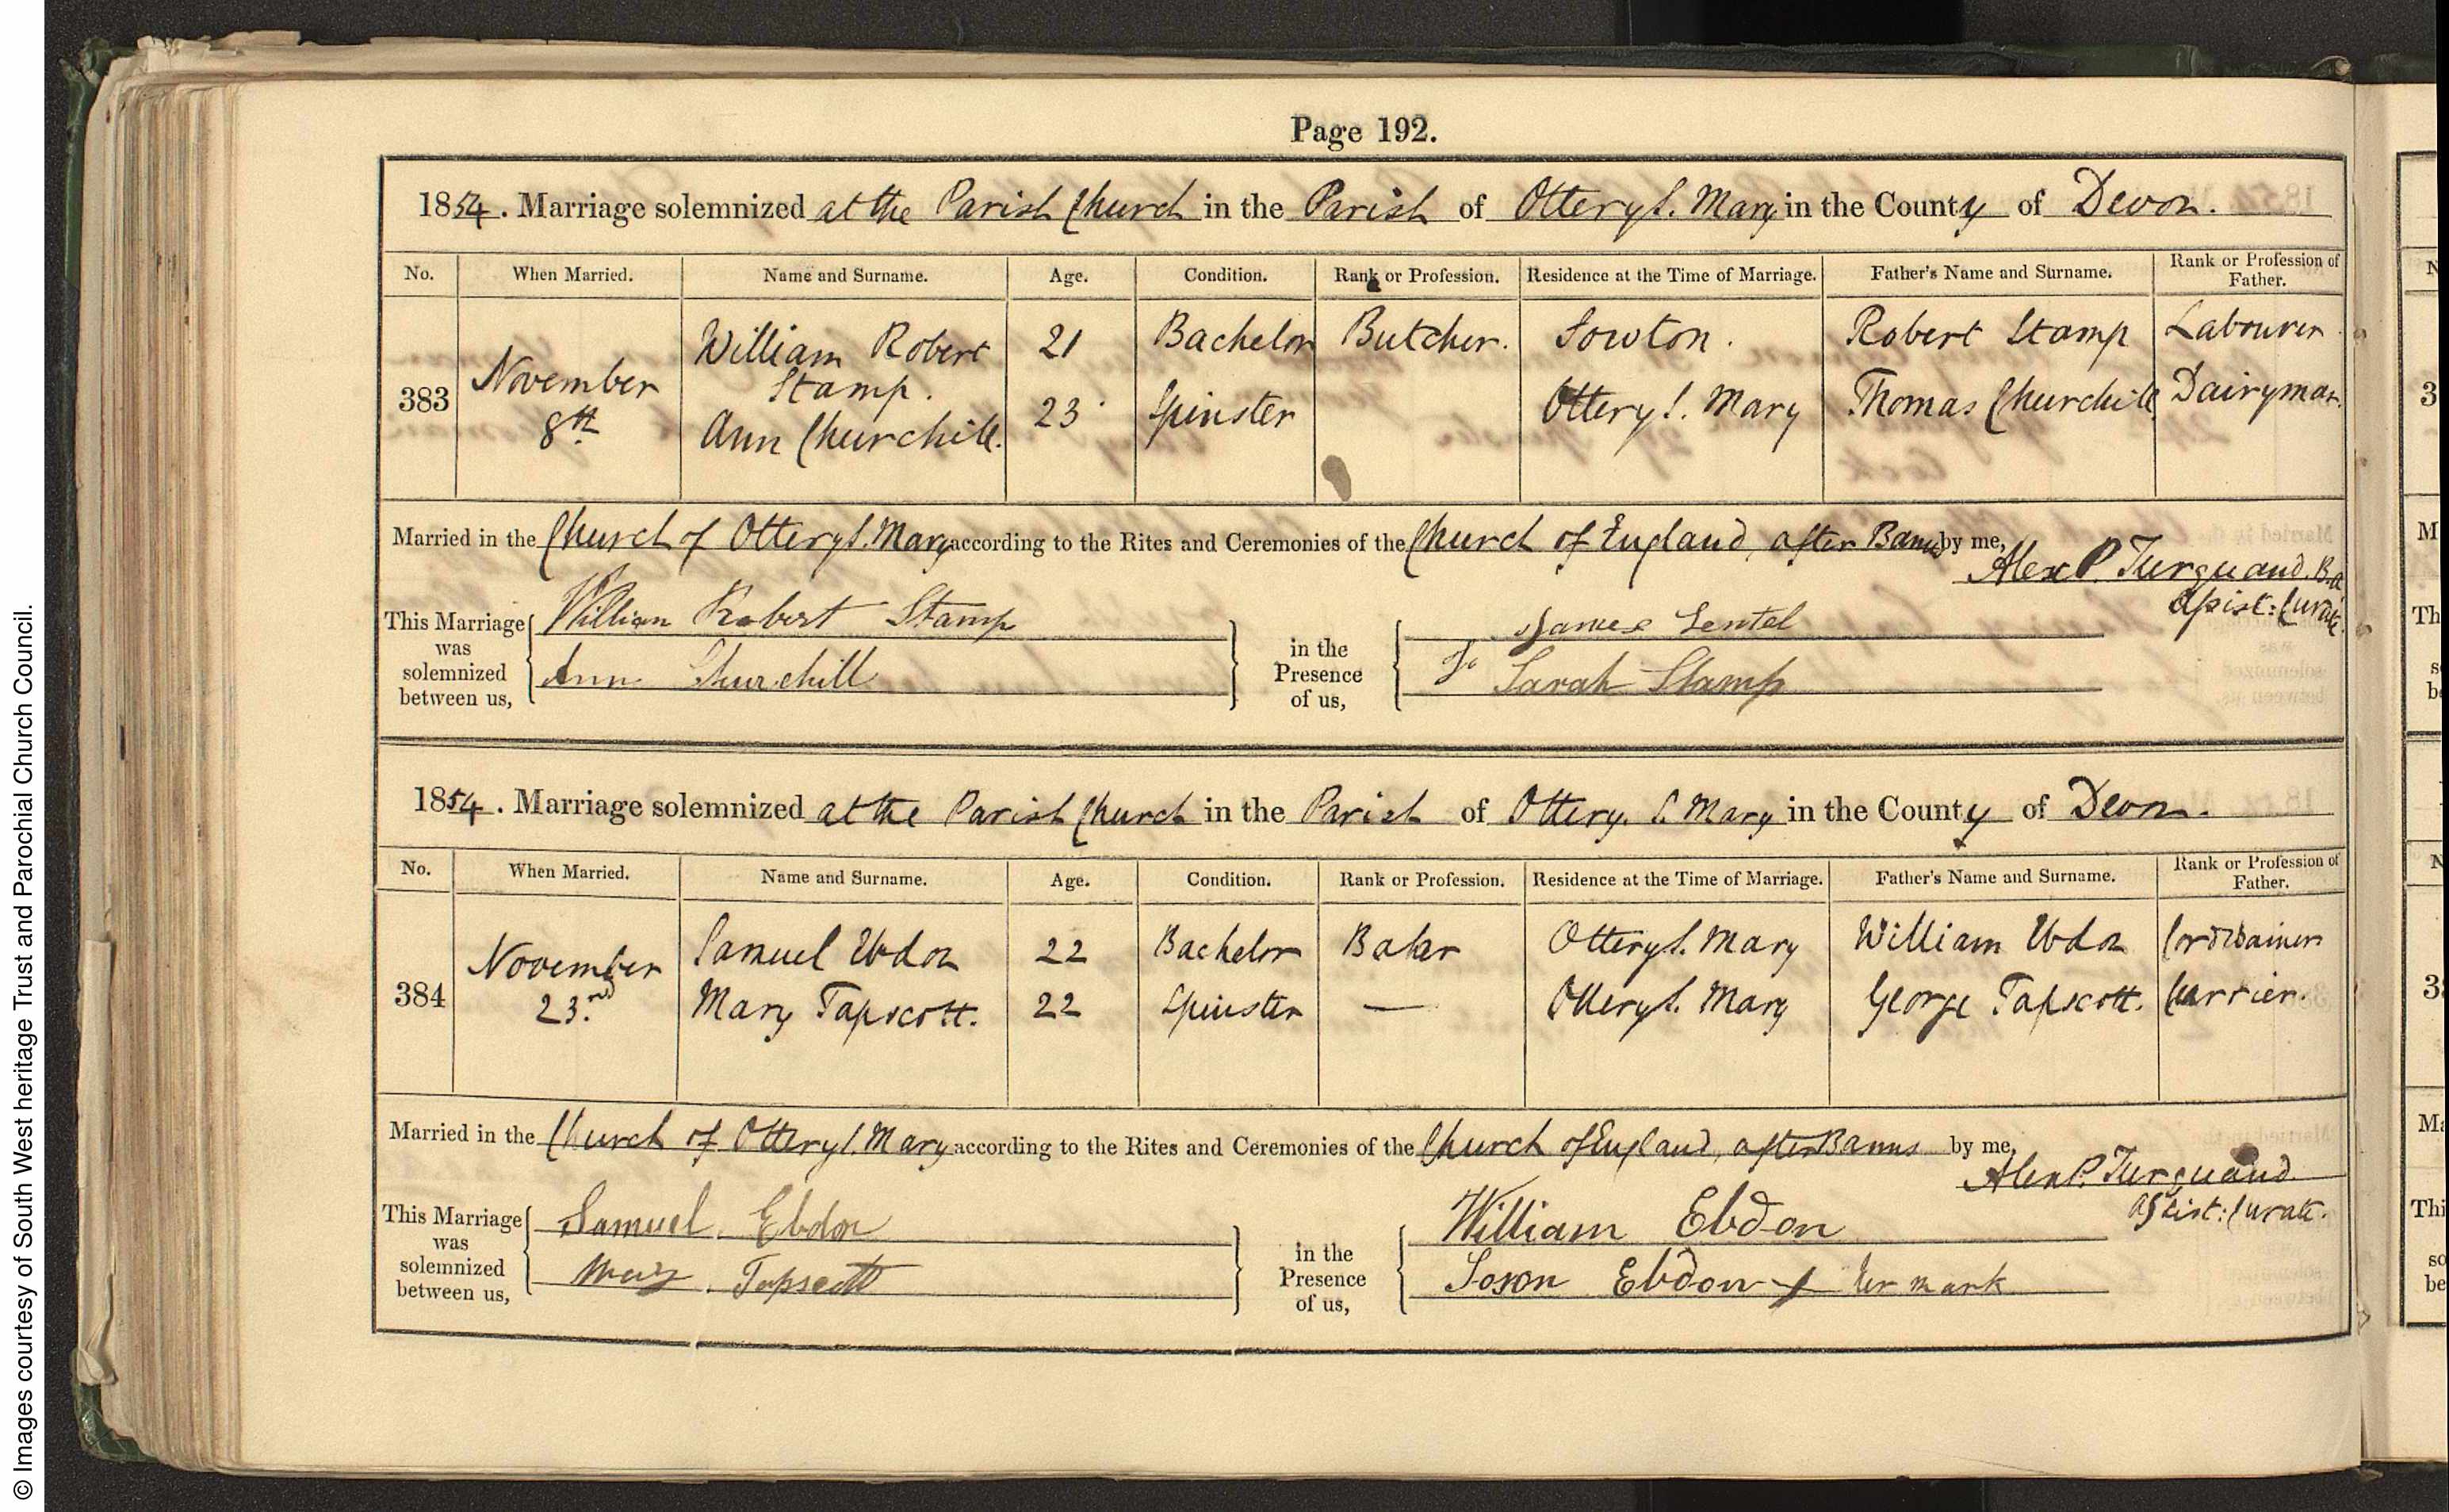 Page 192.
1854. Marriage solemnized at the Parish Church in the Parish of Ottery S. Mary in the County of Devon.
No. When Married. Name and Surname. Age. Condition. Rank or Profession. Residence at the Time of Marriage. Father's Name and Surname. Rank or Profession of Father.
383 November 8th William Robert Stamp. 21 Bachelor Butcher. Sowton. Robert Stamp Labourer
Ann Churchill. 23 Spinster Ottery S. Mary Thomas Churchill Dairyman.
Married in the Church of Ottery S. Mary according to the Rites and Ceremonies of the Church of England, after Banns by me,
Alex P. Turquand. B.A.
Assist: Curate.
This Marriage was solemnized between us, William Robert Stamp
Ann Churchill
in the Presence of us, James
Sarah Stamp
1854. Marriage solemnized at the Parish Church in the Parish of Ottery. S. Mary in the County of Devon.
No. When Married. Name and Surname. Age. Condition. Rank or Profession. Residence at the Time of Marriage. Father's Name and Surname. Rank or Profession of Father.
384 November 23rd Samuel Ebdon 22 Bachelor Baker Ottery S. Mary William Ebdon Cordwainer
Mary Tapscott. 22 Spinster — Ottery S. Mary George Tapscott. Carrier.
Married in the Church of Ottery S. Mary according to the Rites and Ceremonies of the Church of England, after Banns by me,
Alex P. Turquand.
Assist: Curate.
This Marriage was solemnized between us, Samuel Ebdon
Mary Tapscott
in the Presence of us, William Ebdon
Ebdon her mark
© Images courtesy of South West heritage Trust and Parochial Church Council.